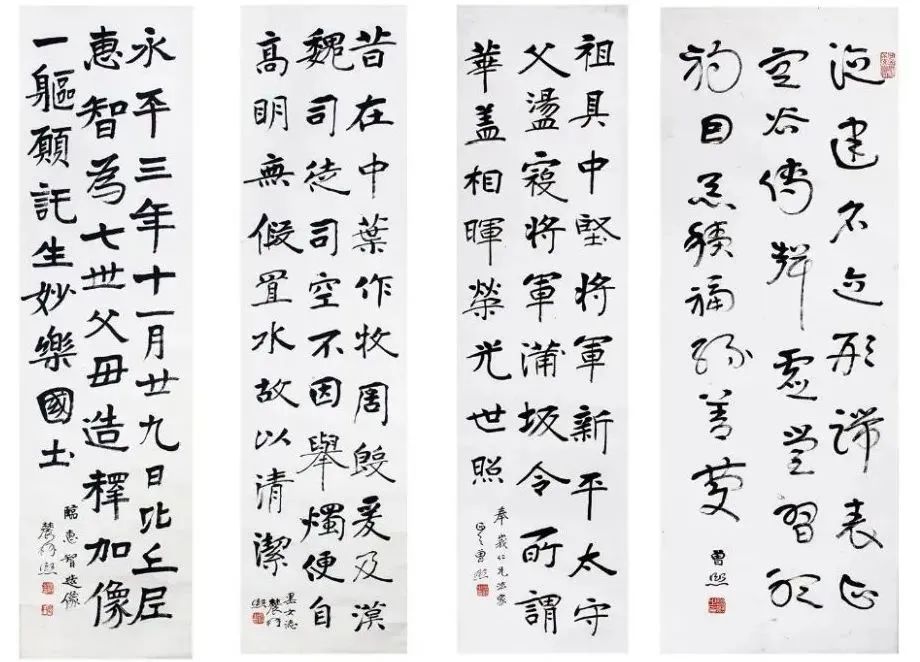 德建名立形端表正
空谷傳聲虛堂習聽
禍因惡積福緣善慶
曾熙
祖具中堅將軍新平太守
父盪寇將軍蒲坂令所謂
華蓋相暉榮光世照
曾熙
昔在中葉作牧周殷爰及漢
魏司徒司空不因舉燭便自
高明無假置水故以清潔
農髯熙
永平三年十一月廿九日比丘尼
惠智為七世父母造釋加像
一軀願託生妙樂國土
臨惠智造像
農髯熙